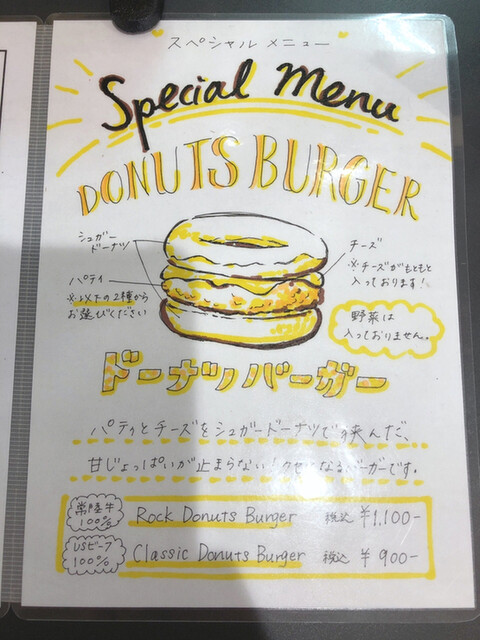 スペシャルメニュー
Special Menu
DONUTS BURGER
シュガー
ドーナツ
パティ
※以下の2種から
お選びください
チーズ
※チーズがもともと
入っております!
野菜は
入っておりません。
ドーナツバーガー
パティとチーズをシュガードーナツで挟んだ、
甘じょっぱいが止まらない!クセになるバーガーです。
常陸牛
100%
Rock Donuts Burger 税込 ¥1,100-
USビーフ
100%
Classic Donuts Burger 税込 ¥900-